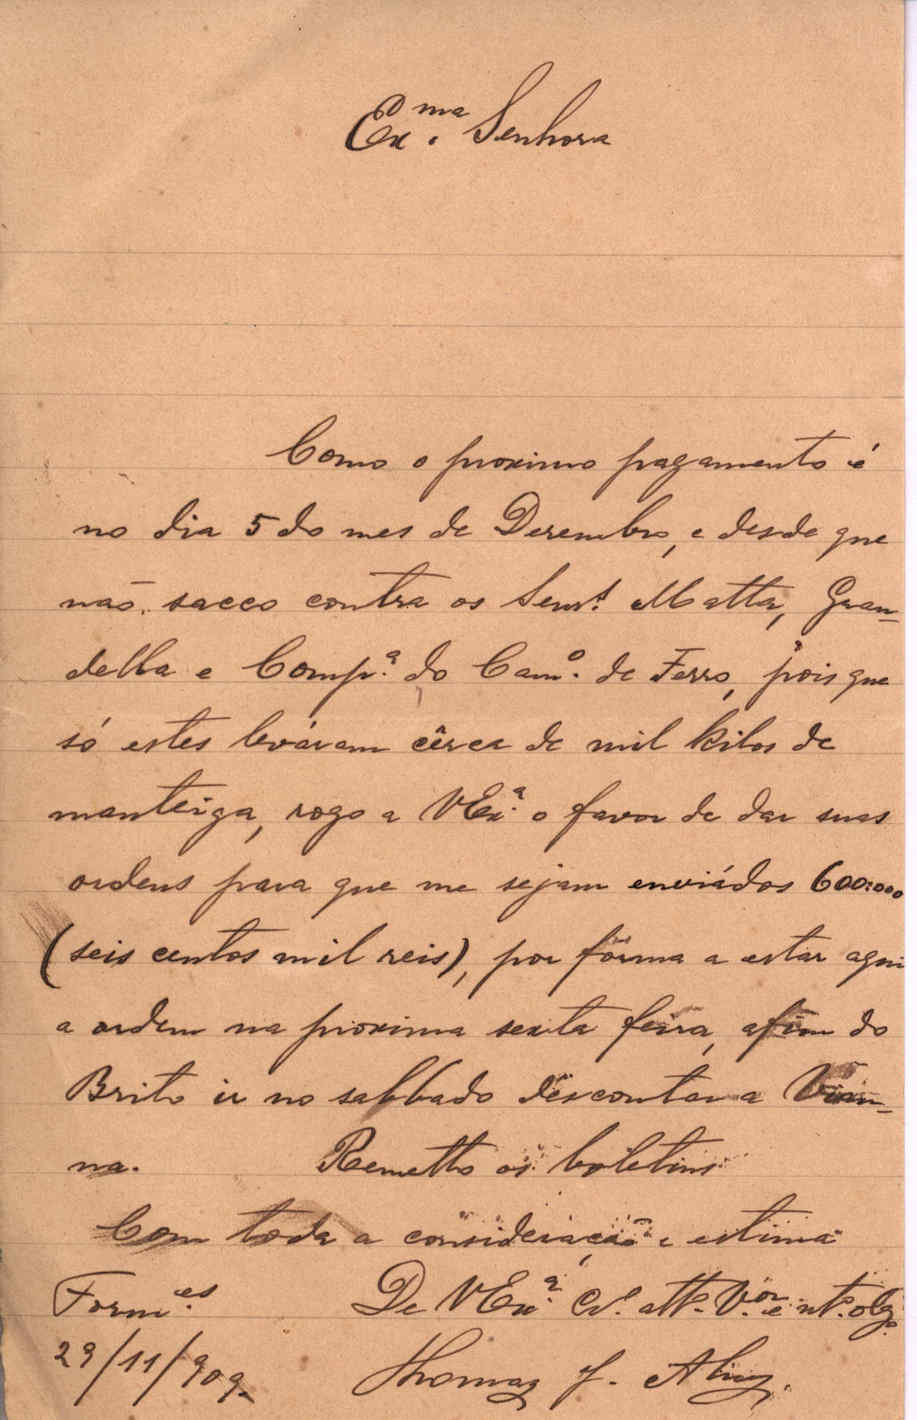 Ex.ma Senhora
Como o proximo pagamento é
no dia 5 do mes de Dezembro, e desde que
não sacco contra os Senrs. Matta, Gran-
della e Comp.a do Cam.o de Ferro, pois que
só estes leváram cêrca de mil kilos de
manteiga, rogo a VEx.a o favor de dar suas
ordens para que me sejam enviádos 600:000
(seis centos mil reis), por fórma a estar aqui
a ordem na proxima sexta feira, afim do
Brito ir no sabbado descontar a Vian-
na. Remetto os boletins
Com toda a consideração e estima
Form.es De VEx.a Cr.o att.o V.or e mt.o obg.o
29/11/909 Thomaz J.